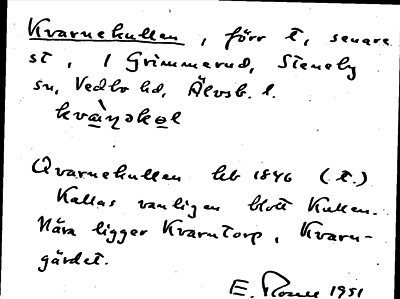 Kvarnekullen, förr t, senare
st, i Grimmerud, Steneby
sn, Vedbo hd, Älvsb. l.
kvàṇəkəl
Qvarnekullen hb 1846 (t.)
Kallas vanligen blott Kullen.
Nära ligger Kvarntorp, Kvarn-
gärdet.
E. 1951